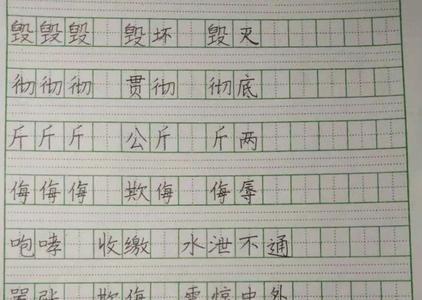 毁毁毁 毁坏 毁灭
彻彻彻 贯彻 彻底
斤斤斤 公斤 斤两
侮侮侮 欺侮 侮辱
咆哮 收缴 水泄不通
欺侮 震惊中外